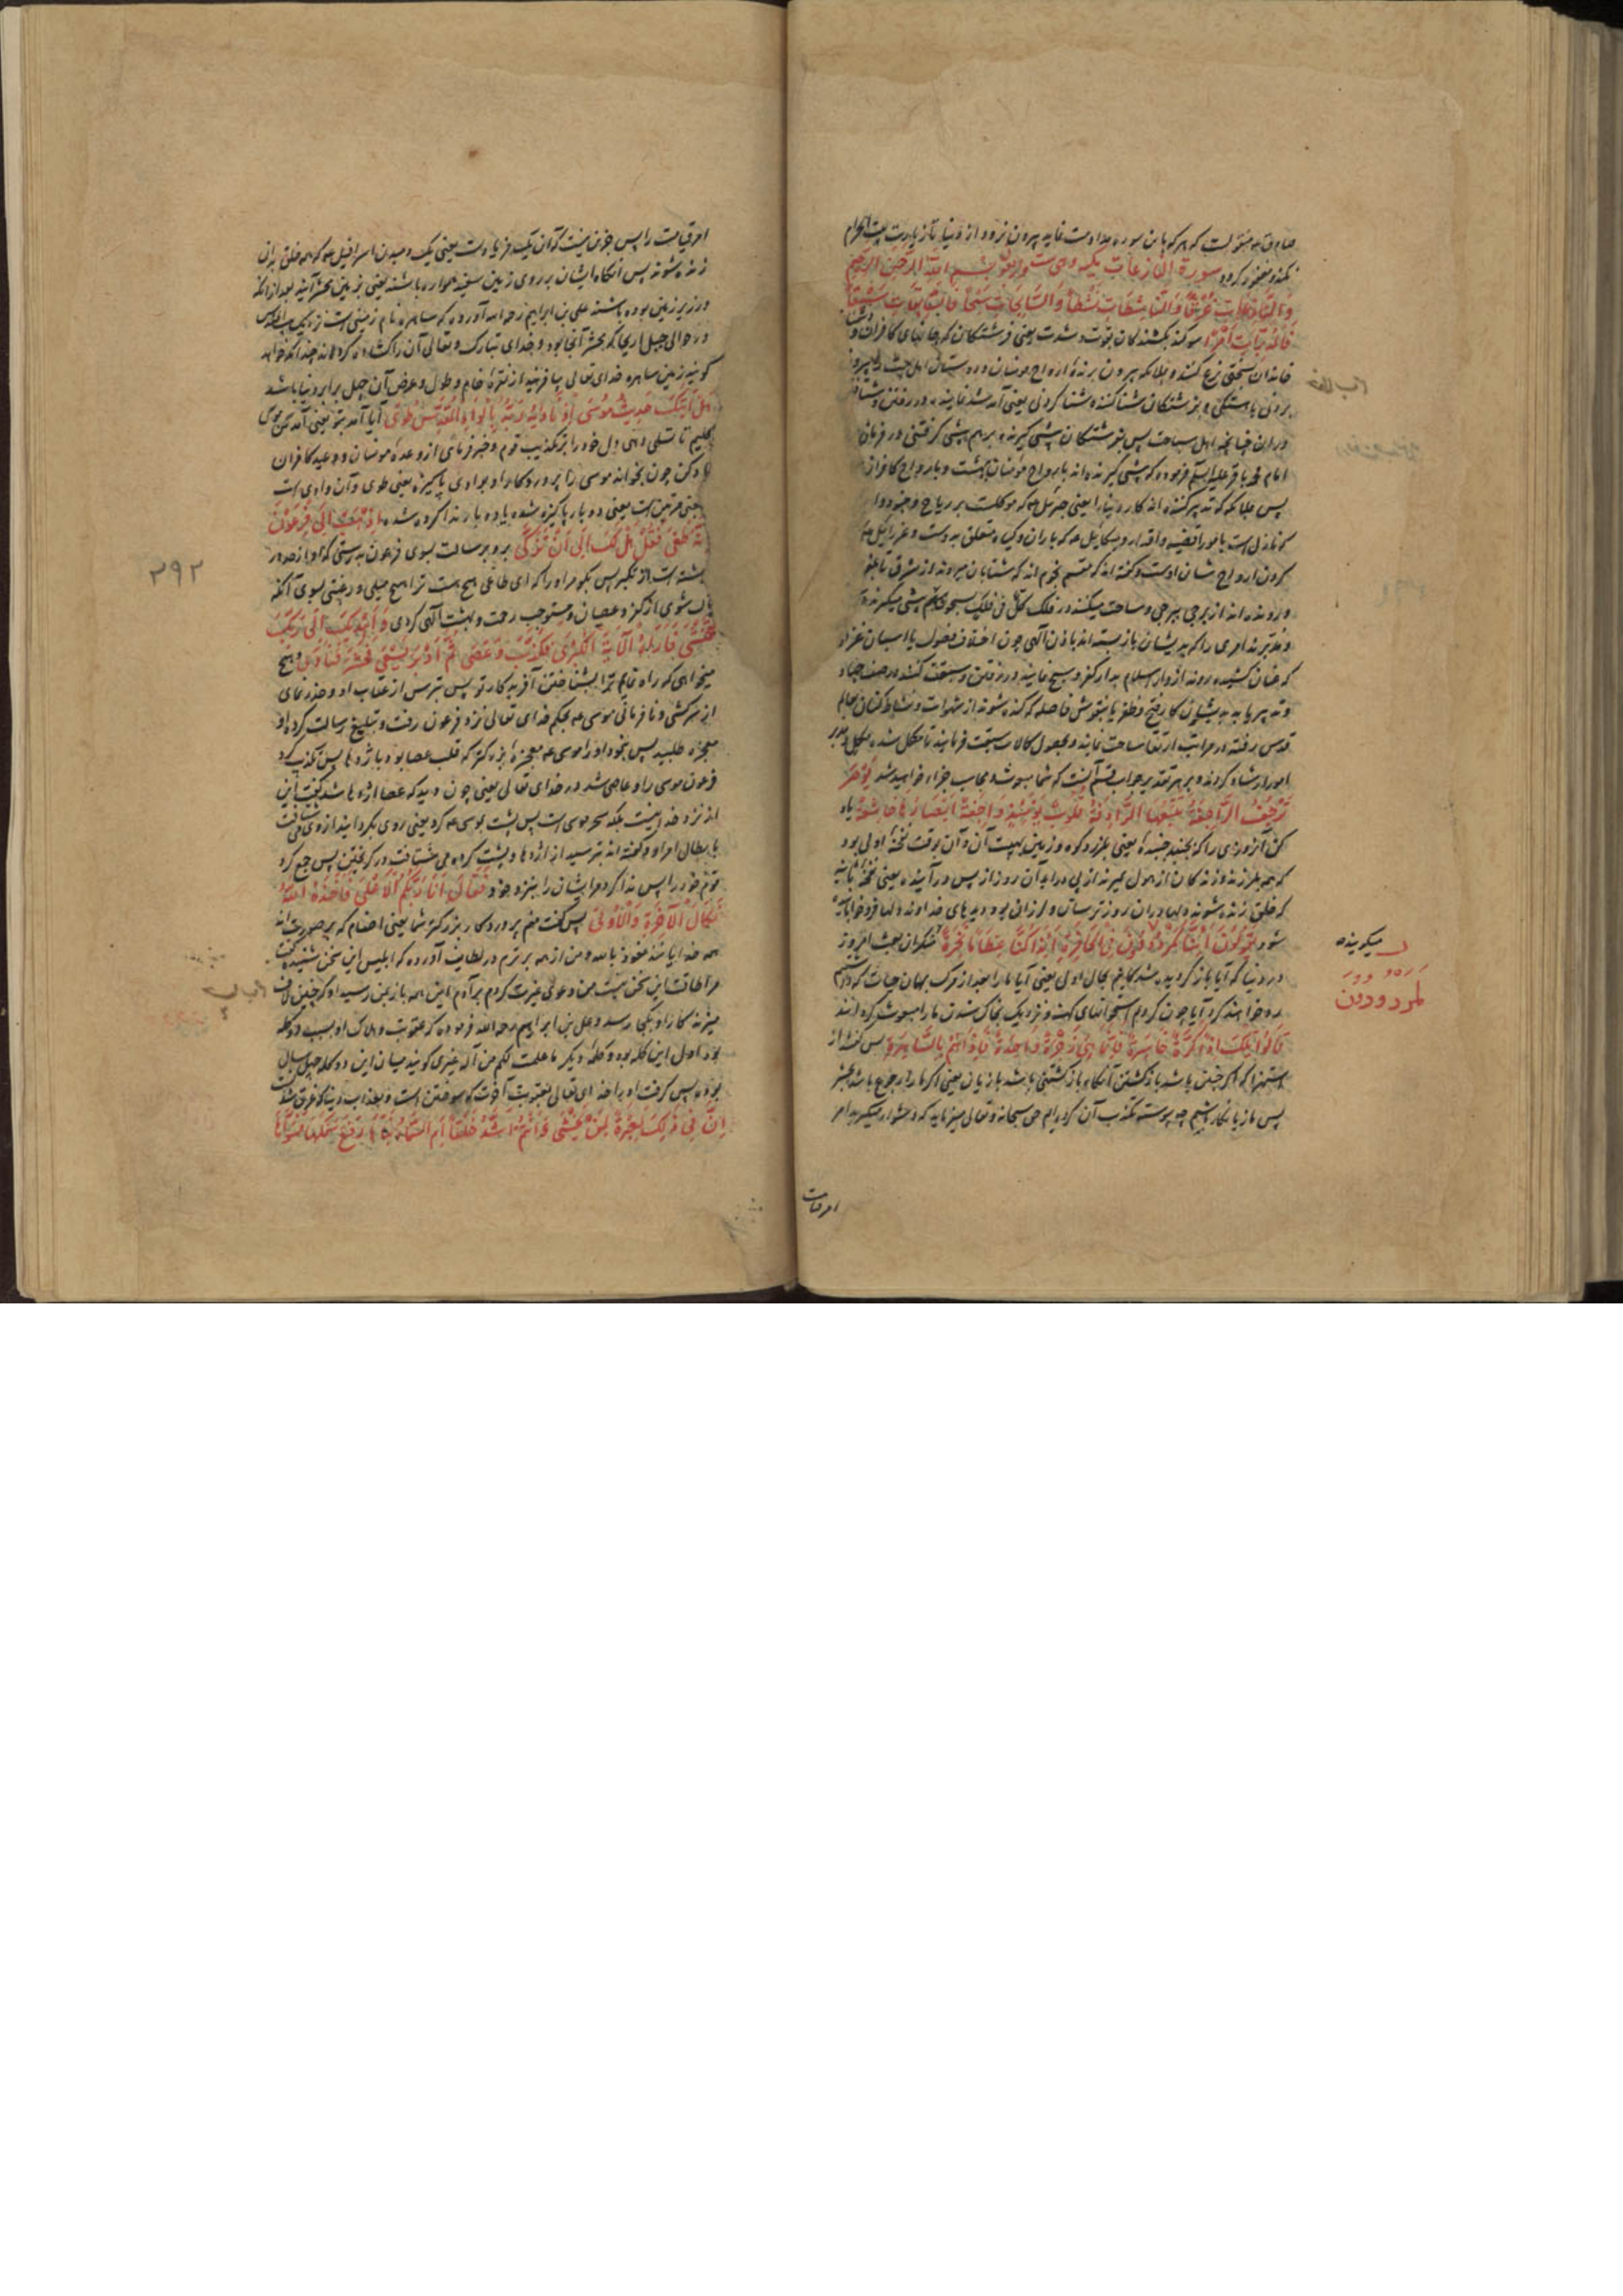 منقولست که هر که باین سوره مداومت نماید بیرون نرود از دنیا تا زیارت بیت الحرام
نکند و مغفور گردد سورة النازعات بسم الله الرحمن الرحیم
وَالنَّازِعَاتِ غَرْقًا وَالنَّاشِطَاتِ نَشْطًا وَالسَّابِحَاتِ سَبْحًا فَالسَّابِقَاتِ سَبْقًا
فَالْمُدَبِّرَاتِ أَمْرًا سوگند بکشندگان بقوت و شدت یعنی فرشتگان که جانهای کافران
بسختی نزع کنند و بملائکه بیرون برندهٔ ارواح مومنان و دوستان اهل
و بفرشتگان شنا کننده شنا کردنی یعنی آمد شد نمایند در رفتن
در آن چنانچه اهل سباحت پس بفرشتگان پیشی گیرنده برهم پیشی گرفتنی در فرمان
امام محمد باقر علیه السلم فرموده که پیشی گیرنده اند بارواح مومنان ببهشت و بارواح کافران
پس بملائکه که تدبیر کننده اند کار دنیا را یعنی جبرئیل که موکلست بر ریاح و جنود و
که نازل است بامور اقضیه و اقدار و میکائیل که باران و گیاه متعلق بدوست و عزرائیل
کردن ارواح شان اوست و گفته اند که قسم نجوم اند که شتابان میروند از مشرق تا مغرب
و روند از برجی ببرجی و سباحت میکنند در فلک کل فی فلک یسبحون پیشی میگیرند
و تدبیر امری را که بدیشان باز بسته اند باذن الهی چون اختلاف فصول یا اسبان غزوه
که عنان کشیده روند از دار اسلام بدار کفر و سبح نمایند در رفتن و سبقت کنند در صف جهاد
قدس رفته در مراتب ارتقا سباحت نمایند و بحصول کمالات سبقت فرمایند تا مکمل شده
امور ارشاد گردند و بر هر تقدیر جواب قسم آنست که شما مبعوث و محاسب جزاء خواهید شد یَوْمَ
تَرْجُفُ الرَّاجِفَةُ تَتْبَعُهَا الرَّادِفَةُ قُلُوبٌ يَوْمَئِذٍ وَاجِفَةٌ أَبْصَارُهَا خَاشِعَةٌ یاد
کن آنروزی را که بجنبد جنبنده یعنی بلرزد کوه و زمین بهیبت آن و آن وقت نفخهٔ اولی بود
که همه زندگان از هول بمیرند از پی درآید آن روز از پس درآینده یعنی نفخه ثانیه
که خلق زنده شوند دلها در آن روز ترسان و لرزان بود دیدهای خداوند دلها فرو خوابانیده
شود يَقُولُونَ أَئِنَّا لَمَرْدُودُونَ فِي الْحَافِرَةِ أَئِذَا كُنَّا عِظَامًا نَخِرَةً منکران بعث امروز
در دنیا که آیا باز گردیده شدگانیم بحال اولی یعنی آیا ما را بعد از مرگ بهمان حیات که داشتیم
رد خواهند کرد آیا چون گردیم استخوانهای کهنه و نزدیک بخاک شدن ما را مبعوث گردانند
قَالُوا تِلْكَ إِذًا كَرَّةٌ خَاسِرَةٌ فَإِنَّمَا هِيَ زَجْرَةٌ وَاحِدَةٌ فَإِذَا هُمْ بِالسَّاهِرَةِ پس گفتند از
استهزا که اگر چنین باشد بازگشتن آنگاه بازگشتنی باشد با زیان یعنی اگر ما را رجوع باشد بحشر
پس ما زیانکار باشیم چه پیوسته تکذیب آن کرده ایم حق سبحانه و تعالی میفرماید که دشوار مگیرید امر
میگویند
لمردودون
امر قیامت
امر قیامت را پس جز این نیست که آن یک فریادست یعنی یک دمیدن اسرافیل که همه خلق بدان
زنده شوند پس آنگاه ایشان بر روی زمین سفید هموار باشند یعنی بزمین محشر آیند بعد از آنکه
در زیر زمین بوده باشند علی بن ابراهیم رحمه الله آورده که ساهره نام زمینی است نزدیک بیت المقدس
در حوالی جبل اریحا که محشر آنجا بود و خدای تبارک و تعالی آن را گشاده گرداند چندانکه خواهد
گویند زمین ساهره خدای تعالی بیافریند از نقرهٔ خام و طول و عرض آن چهل برابر دنیا باشد
هَلْ أَتَاكَ حَدِيثُ مُوسَى إِذْ نَادَاهُ رَبُّهُ بِالْوَادِ الْمُقَدَّسِ طُوًى آیا آمد بتو یعنی آمد سخن موسی
کلیم تا تسلی دهی دل خود را بر تکذیب قوم و خبر فرمائی از وعدهٔ مومنان و وعید کافران
یاد کن چون بخواند موسی را پروردگار او بوادی پاکیزه یعنی طوی و آن وادی است
یعنی دو بار پاکیزه شده یا دو بار ندا کرده شده اذْهَبْ إِلَى فِرْعَوْنَ
إِنَّهُ طَغَى فَقُلْ هَلْ لَكَ إِلَى أَنْ تَزَكَّى برو برسالت بسوی فرعون بدرستی که او از حد در
گذشته است از تکبر پس بگو مر او را که ای طاغی هیچ هست ترا هیچ میلی و رغبتی بسوی آنکه
پاک شوی از کفر و عصیان و مستوجب رحمت و بهشت الهی گردی وَأَهْدِيَكَ إِلَى رَبِّكَ
فَتَخْشَى فَأَرَاهُ الْآيَةَ الْكُبْرَى فَكَذَّبَ وَعَصَى ثُمَّ أَدْبَرَ يَسْعَى فَحَشَرَ فَنَادَى و هیچ
میخواهی که راه نمایم ترا بشناختن آفریدگار تو پس بترس از عقاب او و حذر نمای
از سرکشی و نافرمانی موسی بحکم خدای تعالی نزد فرعون رفت و تبلیغ رسالت کرد و او
معجزه طلبید پس بنمود او را موسی معجزهٔ بزرگتر که قلب عصا بود باژدها پس تکذیب کرد
فرعون موسی را و عاصی شد در خدای تعالی یعنی چون دید که عصا اژدها شد گفت این
از نزد خدا نیست بلکه سحر موسی است پس پشت بموسی کرد یعنی روی بگردانید از وی
بابطال امر او و گفته اند بترسید از اژدها و پشت کرده می شتافت در گریختن پس جمع کرد
قوم خود را پس ندا کرد مر ایشان را بنزد خود فَقَالَ أَنَا رَبُّكُمُ الْأَعْلَى فَأَخَذَهُ اللَّهُ
نَكَالَ الْآخِرَةِ وَالْأُولَى پس گفت منم پروردگار بزرگتر شما یعنی اصنام که بر صورت اند
همه خدایانند نعوذ بالله و من از همه برترم در لطایف آورده که ابلیس این سخن شنید گفت
مرا طاقت این سخن نیست من دعوی خیریت کردم بر آدم این همه بمن رسید او که چنین لاف
میزند کار او بکجا رسد و علی بن ابراهیم رحمه الله فرموده که عقوبت و هلاک او بسبب دو کلمه
بود اول این کلمه بود و کلمهٔ دیگر ما علمت لکم من اله غیری گویند میان این دو کلمه چهل سال
بود پس گرفت او را خدای تعالی بعقوبت آخرت که سوختن است و بعذاب دنیا که غرق شدنست
إِنَّ فِي ذَلِكَ لَعِبْرَةً لِمَنْ يَخْشَى أَأَنْتُمْ أَشَدُّ خَلْقًا أَمِ السَّمَاءُ بَنَاهَا رَفَعَ سَمْكَهَا فَسَوَّاهَا
۳۹۲